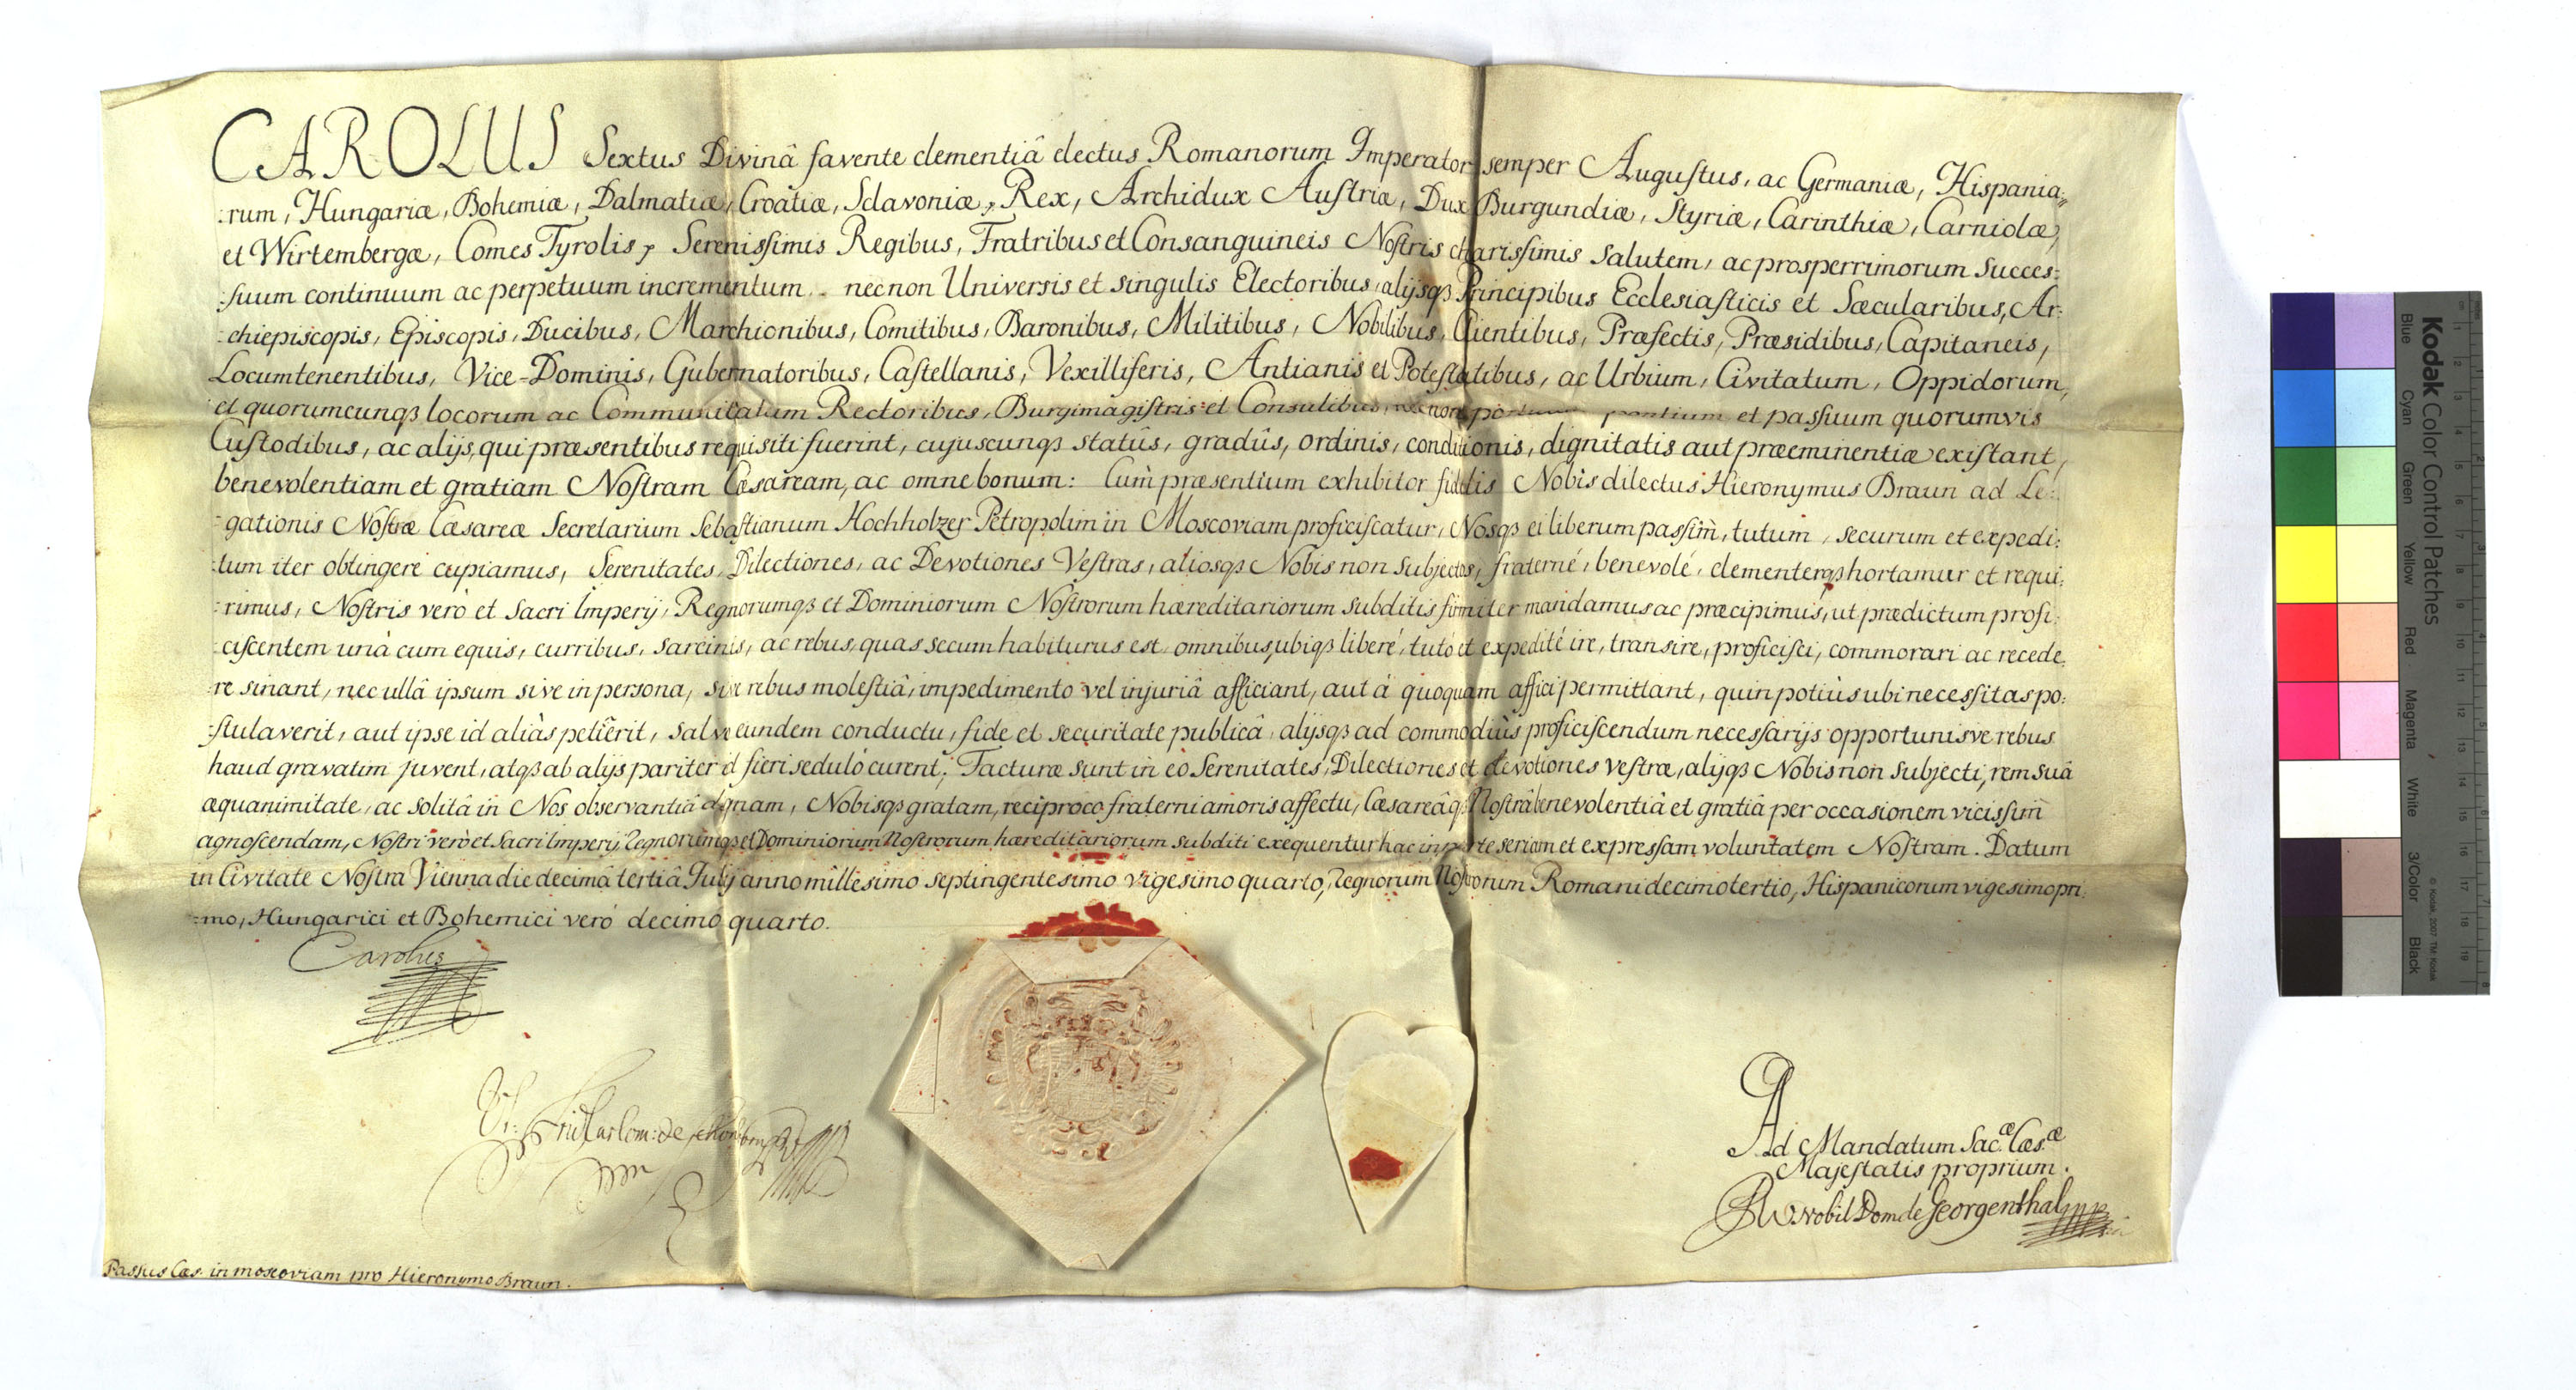 CAROLUS Sextus Divinâ favente clementiâ electus Romanorum Imperator semper Auguſtus, ac Germaniæ, Hispania:
:rum, Hungariæ, Bohemiæ, Dalmatiæ, Croatiæ, Sclavoniæ, Rex, Archidux Auſtriæ, Dux Burgundiæ, Styriæ, Carinthiæ, Carniolæ,
et Wirtembergæ, Comes Tyrolis, Sereniſsimis Regibus, Fratribus et Consanguineis Noſtris chariſsimis salutem, ac prosperrimorum succes:
:ſuum continuum ac perpetuum incrementum. necnon Universis et singulis Electoribus, alijsqȝ Principibus Eccleſiaſticis et Sæcularibus, Ar:
:chiepiscopis, Episcopis, Ducibus, Marchionibus, Comitibus, Baronibus, Militibus, Nobilibus, Clientibus, Præfectis, Præsidibus, Capitaneis,
Locumtenentibus, Vice-Dominis, Gubernatoribus, Caſtellanis, Vexilliferis, Antianis et Poteſtatibus, ac Urbium, Civitatum, Oppidorum,
et quorumcunqȝ locorum ac Communitatum Rectoribus, Burgimagiſtris et Consulibus, necnon pontium et paſsuum quorumvis
Cuſtodibus, ac alijs, qui præsentibus requisiti fuerint, cujuscunqȝ statûs, gradûs, ordinis, conditionis, dignitatis aut præeminentiæ exiſtant,
benevolentiam et gratiam Noſtram Cæsaream, ac omne bonum: Cùm præsentium exhibitor fidelis Nobis dilectus Hieronymus Braun ad Le:
:gationis Noſtræ Cæsareæ Secretarium Sebaſtianum Hochholzer Petropolim in Moscoviam proficiſcatur, Nosqȝ ei liberum paſsim, tutum, securum et expedi:
:tum iter obtingere cupiamus, Serenitates, Dilectiones, ac Devotiones Veſtras, aliosqȝ Nobis non subjectos, fraterné, benevolé, clementerqȝ hortamur et requi:
:rimus, Noſtris verò et Sacri Imperij, Regnorumqȝ et Dominiorum Noſtrorum hæreditariorum subditis firmiter mandamus ac præcipimus, ut prædictum profi:
:ciſcentem unà cum equis, curribus, sarcinis, ac rebus, quas secum habiturus est omnibus, ubiqȝ liberé, tutó et expedité ire, transire, proficiſci, commorari ac recede:
:re sinant, nec ullâ ipsum sive in persona, sive rebus moleſtiâ, impedimento vel injuriâ afficiant, aut à quoquam affici permittant, quin potiùs ubi neceſsitas po:
:ſtulaverit, aut ipse id aliàs petierit, salvo eundem conductu, fide et securitate publicâ, alijsqȝ ad commodiùs proficiſcendum neceſsarijs opportunisve rebus
haud gravatim juvent, atqȝ ab alijs pariter id fieri sedulò curent; Facturæ sunt in eò Serenitates, Dilectiones et devotiones veſtræ, alijqȝ Nobis non subjecti, rem suâ
æquanimitate, ac solitâ in Nos observantiâ dignam, Nobisqȝ gratam, reciproco fraterni amoris affectu, Cæsareâqȝ Noſtrâ benevolentiâ et gratiâ per occasionem viciſsim
agnoſcendam, Noſtri verò et Sacri Imperij, Regnorumqȝ et Dominiorum Noſtrorum hæreditariorum subditi exequentur hac in parte seriam et expreſsam voluntatem Noſtram. Datum
in Civitate Noſtra Vienna die decimâ tertiâ Julij anno millesimo septingentesimo vigesimo quarto, Regnorum Noſtrorum Romani decimo tertio, Hispanicorum vigesimo pri:
:mo, Hungarici et Bohemici veró decimo quarto.
Carolus
Ad Mandatum Sac.æ Cæs.æ
Majeſtatis proprium.
Nobil Dom de Georgenthal mp
Passus Cæs. in moscoviam pro Hieronymo Braun.
Kodak Color Control Patches
Blue Cyan Green Yellow Red Magenta White 3/Color Black
© Kodak, 2007 TM: Kodak